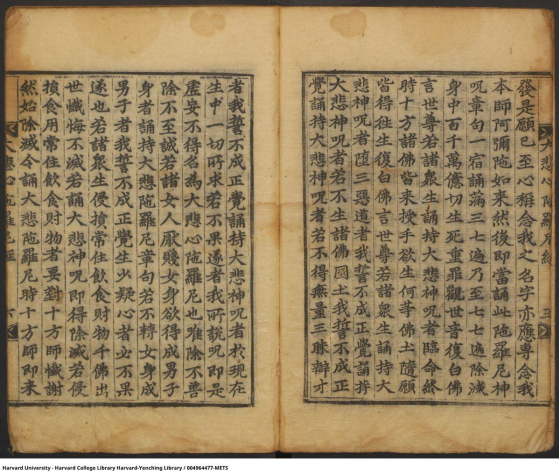 發是願已至心稱念我之名字亦應專念我
本師阿彌陁如来然後即當誦此陁羅尼神
呪章句一宿誦滿三七遍乃至七七遍除滅
身中百千萬億切生死重罪觀世音復白佛
言世尊若諸衆生誦持大悲神呪者臨命終
時十方諸佛皆来授手欲生何等佛土隨願
皆得往生復白佛言世尊若諸衆生誦持大
悲神呪者墮三惡道者我誓不成正覺誦持
大悲神呪者若不生諸佛國土我誓不成正
覺誦持大悲神呪者若不得無量三昧辯才
大悲心陁羅尼経
者我誓不成正覺誦持大悲神呪者於現在
生中一切所求若不果遂者我所說呪即是
虛妄不得名為大悲心陁羅尼也唯除不善
除不至誠若諸女人厭賤女身欲得成男子
身者誦持大悲陁羅尼章句若不轉女身成
男子者我誓不成正覺生少疑心者必不果
遂也若諸衆生侵損常住飲食財物千佛出
世懺悔不滅若誦大悲神呪即得除滅若侵
損食用常住飲食財物者要對十方師懺謝
然始除滅今誦大悲陁羅尼時十方師即来
Harvard University - Harvard College Library Harvard-Yenching Library / 004964477-METS